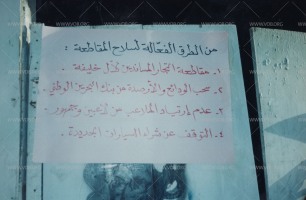 WWW.VOB.ORG
من الطرق الفعّالة لسلاح المقاطعة :
١. مقاطعة التجار المساندين لآل خليفة .
٢. سحب الودائع والأرصدة من بنك البحرين الوطني .
٣. عدم إرتياد الملاعب من لاعبين وجمهور .
٤. التوقف عن شراء السيارات الجديدة .